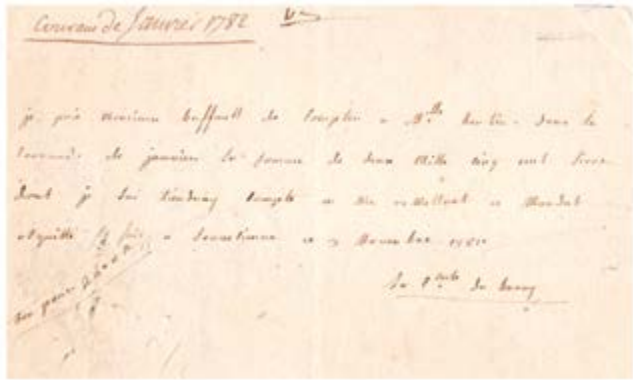 Courant de Janvier 1782
je prie monsieur buffault de compter a M.lle bertin dans le
courant de janvier la somme de deux mille cinq cent livres
dont je lui tiendray compte en me remettant ce mandat
acquitté fait a ce 3 novembre 1781
La C.tesse du barry